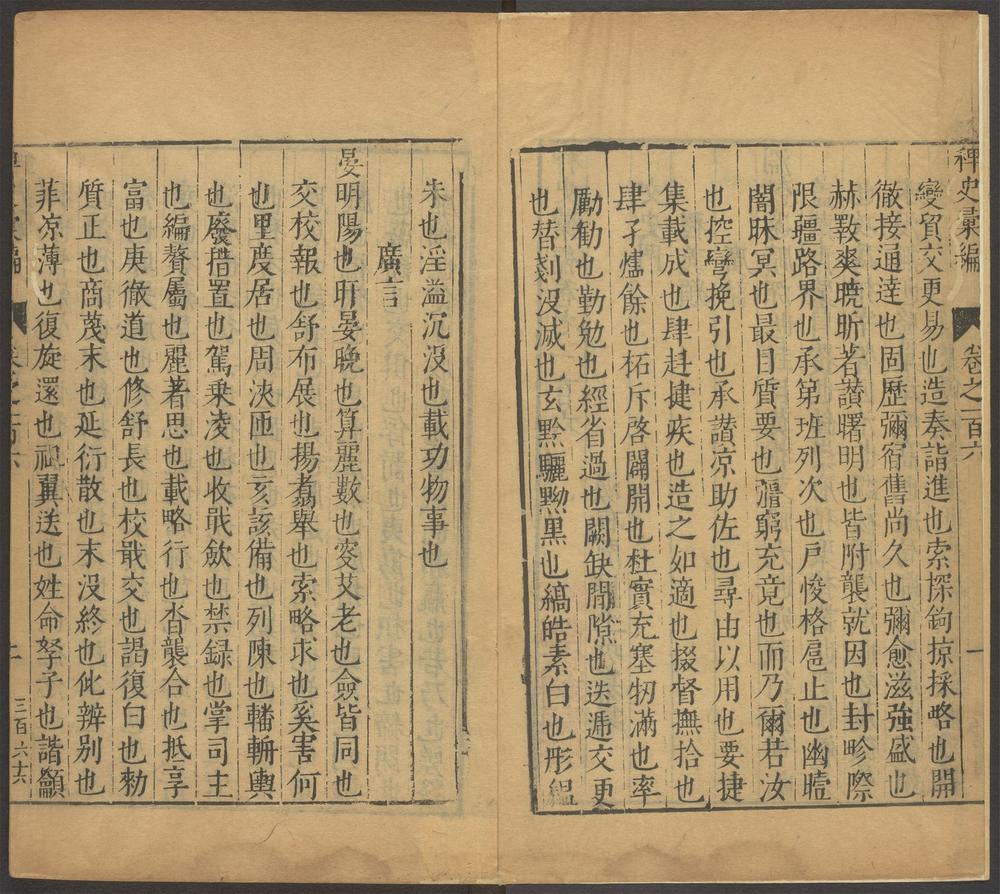 稗史彙編
卷之一百六
一
變貿交更易也造奏詣進也索探鉤掠採略也開
徹接通達也固歷彌宿舊尚久也彌愈滋強盛也
赫斁爽曉昕著讃曙明也皆附襲就因也封畛際
限疆路界也承第班列次也戸悛格扈止也幽曀
闇昧冥也最目質要也灂窮充竟也而乃爾若汝
也控彎挽引也承讃凉助佐也尋由以用也要捷
集載成也肆赶捷疾也造之如適也掇督撫拾也
肆孑燼餘也柘斥啓闢開也杜實充塞牣滿也率
勵勸也勤勉也經省過也闕缺閒隙也迭遞交更
也替剗沒滅也玄黔驪黝黑也縞皓素白也彤緼
朱也淫溢沉沒也載功物事也
廣言
晏明陽也旰晏晩也算麗數也叜艾老也僉皆同也
交校報也舒布展也揚翥舉也索略求也奚害何
也里度居也周浹匝也亥該備也列陳也轓軿輿
也廢措置也駕乗凌也收戢斂也禁録也掌司主
也編贅屬也麗著思也載略行也沓襲合也抵享
富也庚徹道也修舒長也校戢交也謁復白也勑
質正也商蔑末也延衍散也末沒終也仳辨别也
菲凉薄也復旋還也祖翼送也姓命孥子也諧龥
二
三百六十六